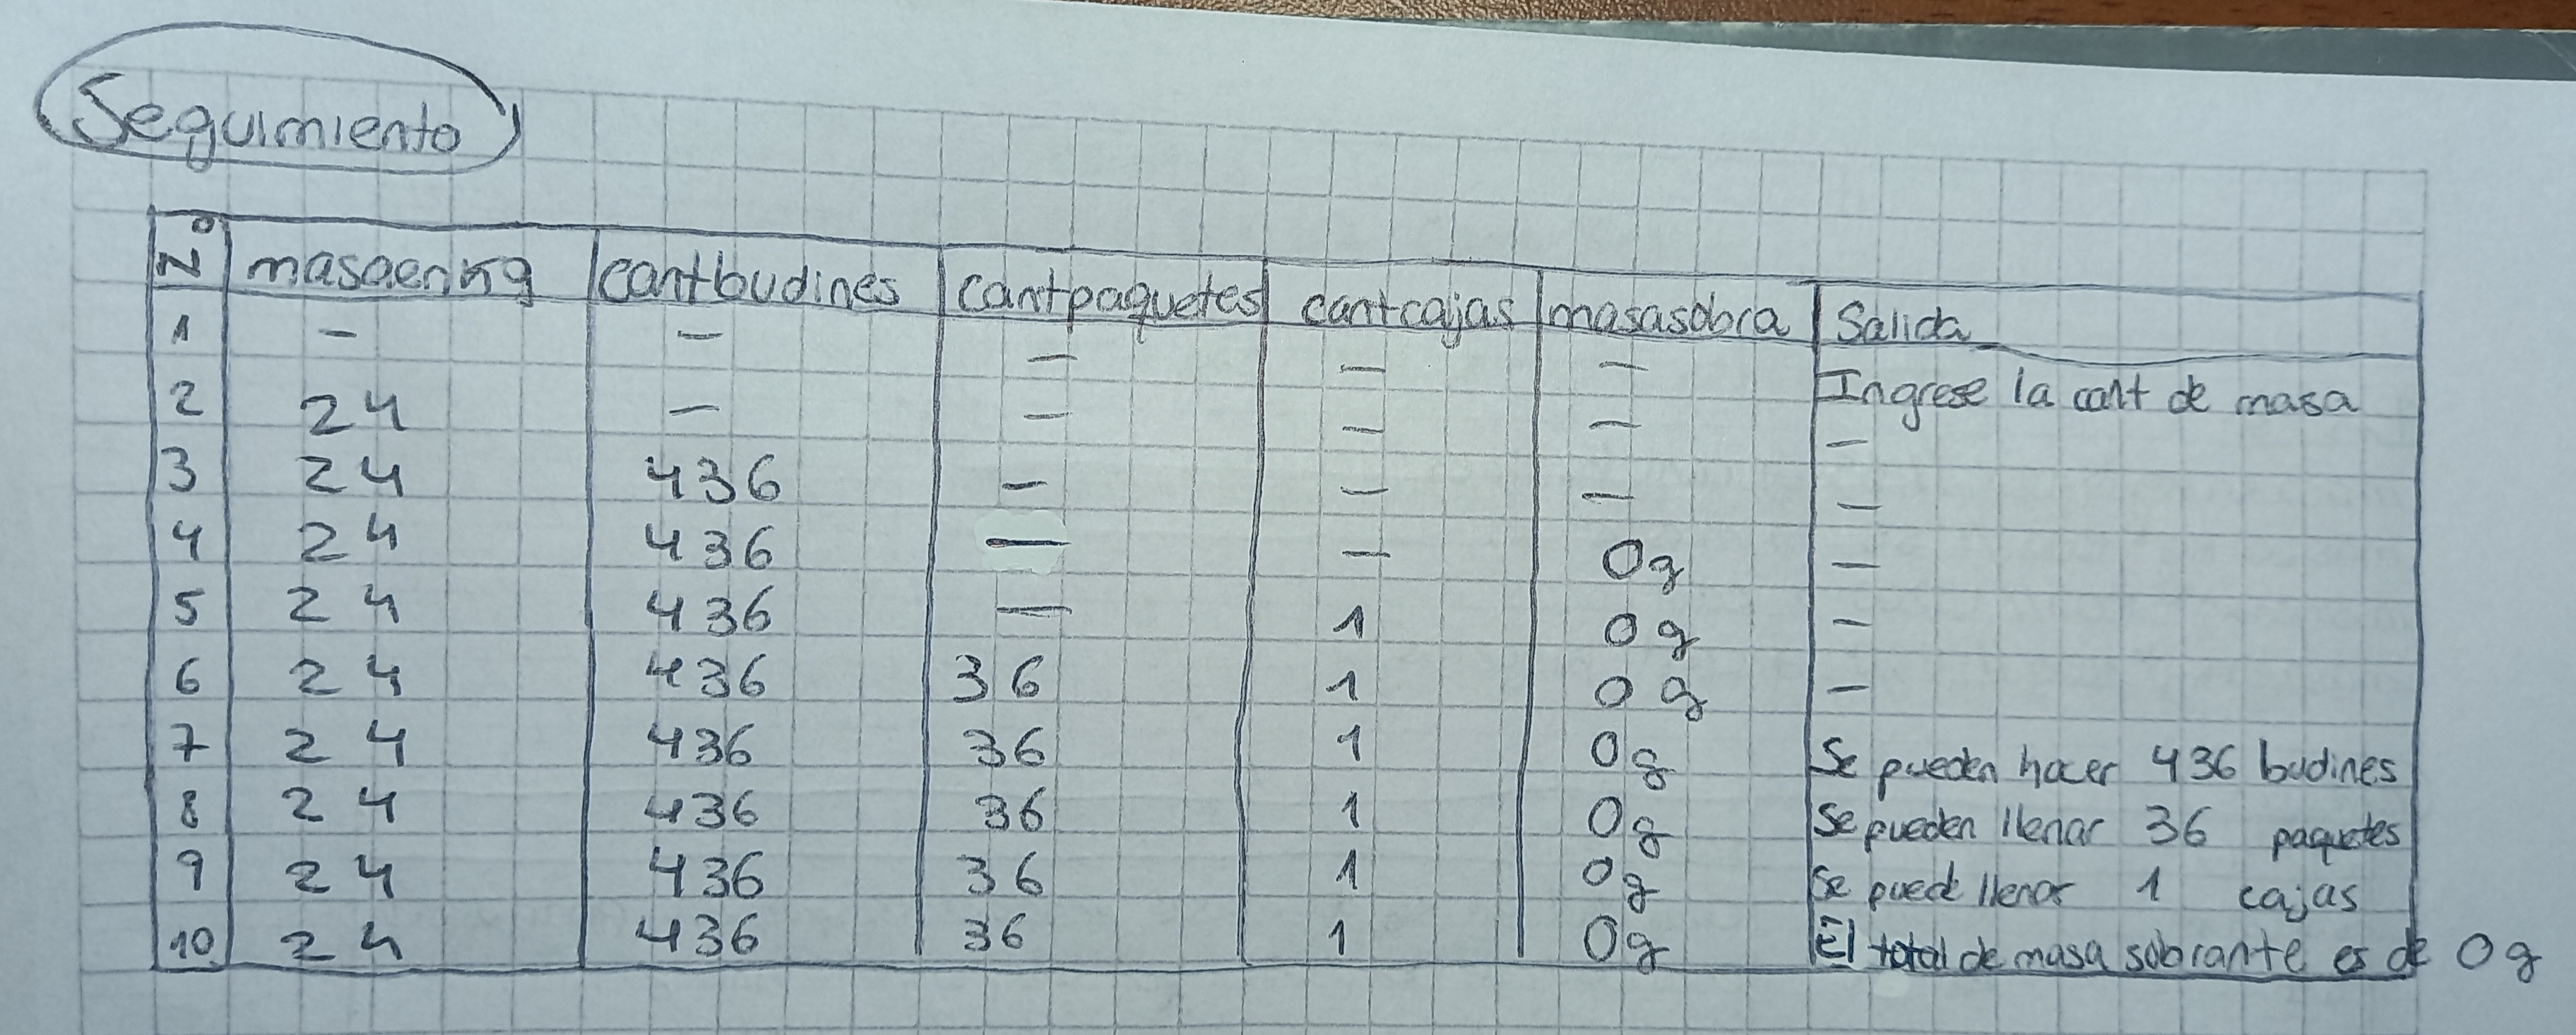 Seguimiento
N° masaenkg cantbudines cantpaquetes cantcajas masasobra Salida
1 - - - - - Ingrese la cant de masa
2 24 - - - - -
3 24 436 - - - -
4 24 436 - - 0g -
5 24 436 - 1 0g -
6 24 436 36 1 0g -
7 24 436 36 1 0g Se pueden hacer 436 budines
8 24 436 36 1 0g Se pueden llenar 36 paquetes
9 24 436 36 1 0g Se puede llenar 1 cajas
10 24 436 36 1 0g El total de masa sobrante es de 0g